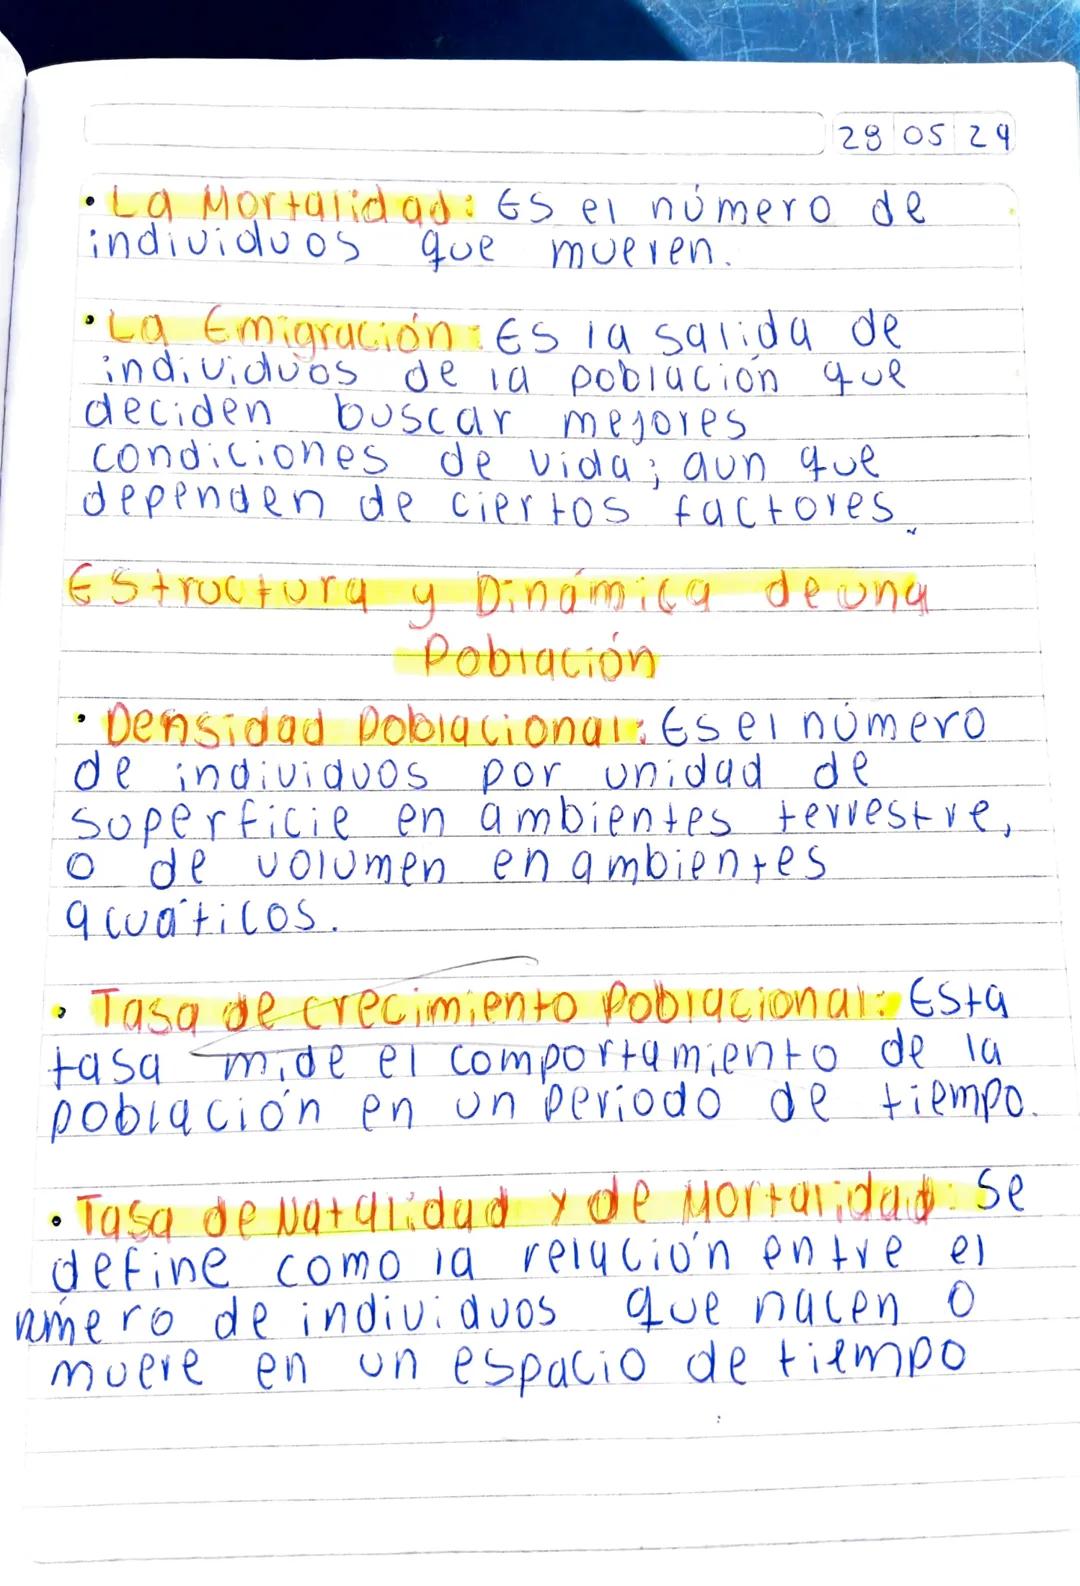 28 05 24
• La Mortalidad: Es el número de
individuos que mueren.
• La Emigración: Es la salida de
individuos de la población que
deciden buscar mejores
condiciones de vida; aun que
dependen de ciertos factores.
Estructura y Dinámica de una
Población
• Densidad Poblacional: Es el número
de individuos por unidad de
superficie en ambientes terrestre,
o de volumen en ambientes
acuáticos.
• Tasa de crecimiento Poblacional: Esta
tasa mide el comportamiento de la
población en un periodo de tiempo.
• Tasa de Natalidad y de Mortalidad: Se
define como la relación entre el
número de individuos que nacen o
muere en un espacio de tiempo